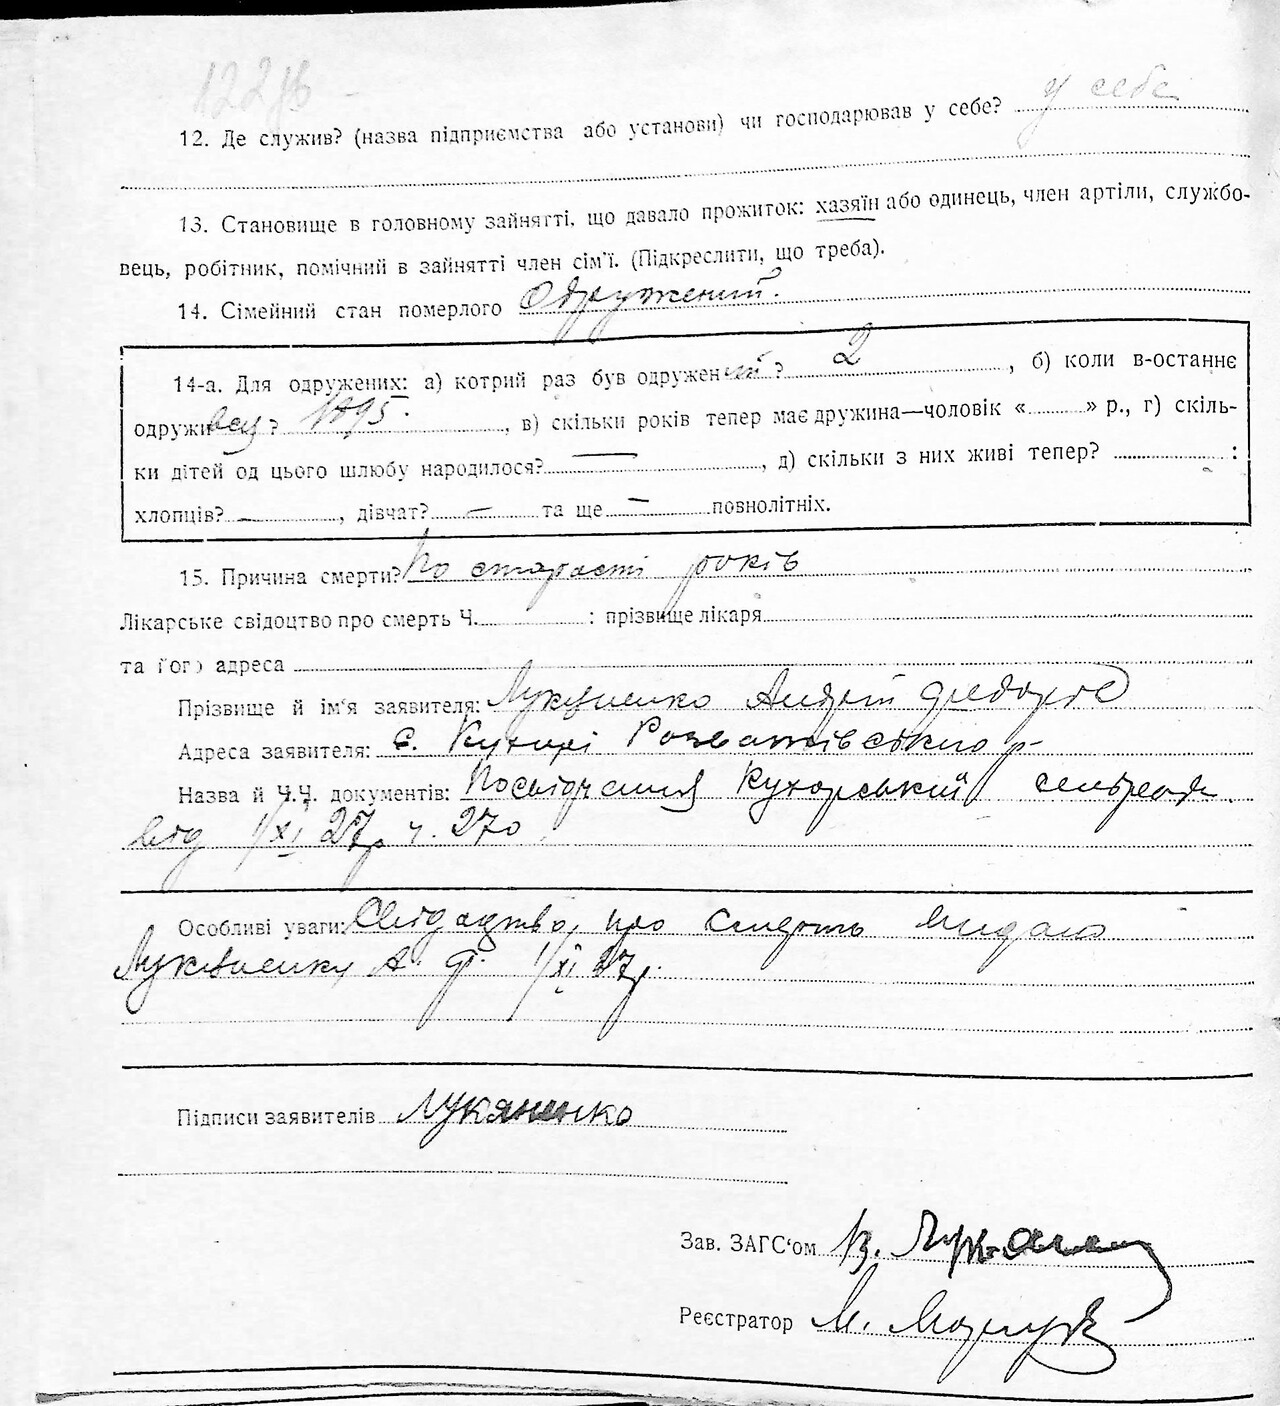 122зв
12. Де служив? (назва підприємства або установи) чи господарював у себе? у себе
13. Становище в головному зайнятті, що давало прожиток: хазяїн або одинець, член артіли, службо-
вець, робітник, помічний в зайнятті член сім'ї. (Підкреслити, що треба).
14. Сімейний стан померлого Одружений.
14-а. Для одружених: а) котрий раз був одружений? 2, б) коли в-останнє
одруживсь? 1895. , в) скільки років тепер має дружина—чоловік « » р., г) скіль-
ки дітей од цього шлюбу народилося? — , д) скільки з них живі тепер? :
хлопців? — , дівчат? — та ще — повнолітніх.
15. Причина смерти? По старасті років
Лікарське свідоцтво про смерть Ч. : прізвище лікаря
та його адреса
Прізвище й ім'я заявителя: Андрій
Адреса заявителя: с. Кухарі Розважівського р-
Назва й Ч.Ч. документів: Посвідчення Кухорський сельради
від 1/XI 27р ч. 270
Особливі уваги: Свідоцтво про смерть видано
А. Ф. 1/XI 27р.
Підписи заявителів Лукяненко
Зав. ЗАГС‘ом В.
Реєстратор М.